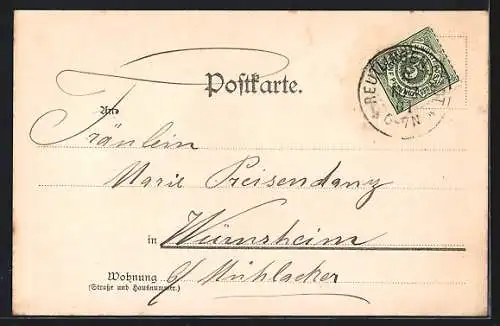 Postkarte.
REUTLINGEN
6-7N
An
Fräulein
Marie Preisendanz
in Wurmsheim
Wohnung
(Straße und Hausnummer.)
Mühlacker